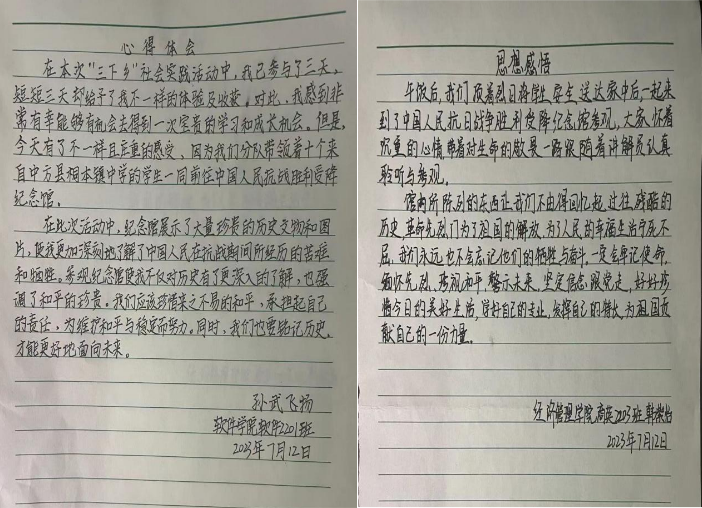 心得体会
在本次“三下乡”社会实践活动中，我已参与了三天，
短短三天却给予了我不一样的体验及收获。对此，我感到非
常有幸能够有机会去得到一次宝贵的学习和成长机会。但是，
今天有了不一样且庄重的感受，因为我们分队带领着十个来
自中方县桐木镇中学的学生一同前往中国人民抗战胜利受降
纪念馆。
在此次活动中，纪念馆展示了大量珍贵的历史文物和图
片，使我更加深刻地了解了中国人民在抗战期间所经历的苦难
和牺牲。参观纪念馆使我不仅对历史有了更深入的了解，也强
调了和平的珍贵。我们应该珍惜来之不易的和平，承担起自己
的责任，为维护和平与稳定而努力。同时，我们也要铭记历史，
才能更好地面向未来。
孙武飞扬
软件学院软件2201班
2023年7月12日
思想感悟
午饭后，我们顶着烈日将学生安全送达家中后，一起来
到了中国人民抗日战争胜利受降纪念馆参观，大家怀着
沉重的心情，带着对生命的敬畏一路跟随着讲解员认真
聆听与参观。
馆内所陈列的东西让我们不由得回忆起过往残酷的
历史，革命先烈们为了祖国的解放，为了人民的幸福生活宁死不
屈，我们永远也不会忘记他们的牺牲与奋斗，一定会牢记使命，
缅怀先烈、珍视和平、警示未来、坚定信念、跟党走，好好珍
惜今日的美好生活，学好自己的专业，发挥自己的特长，为祖国贡
献自己的一份力量。
经济管理学院商英2203班韩
2023年7月12日